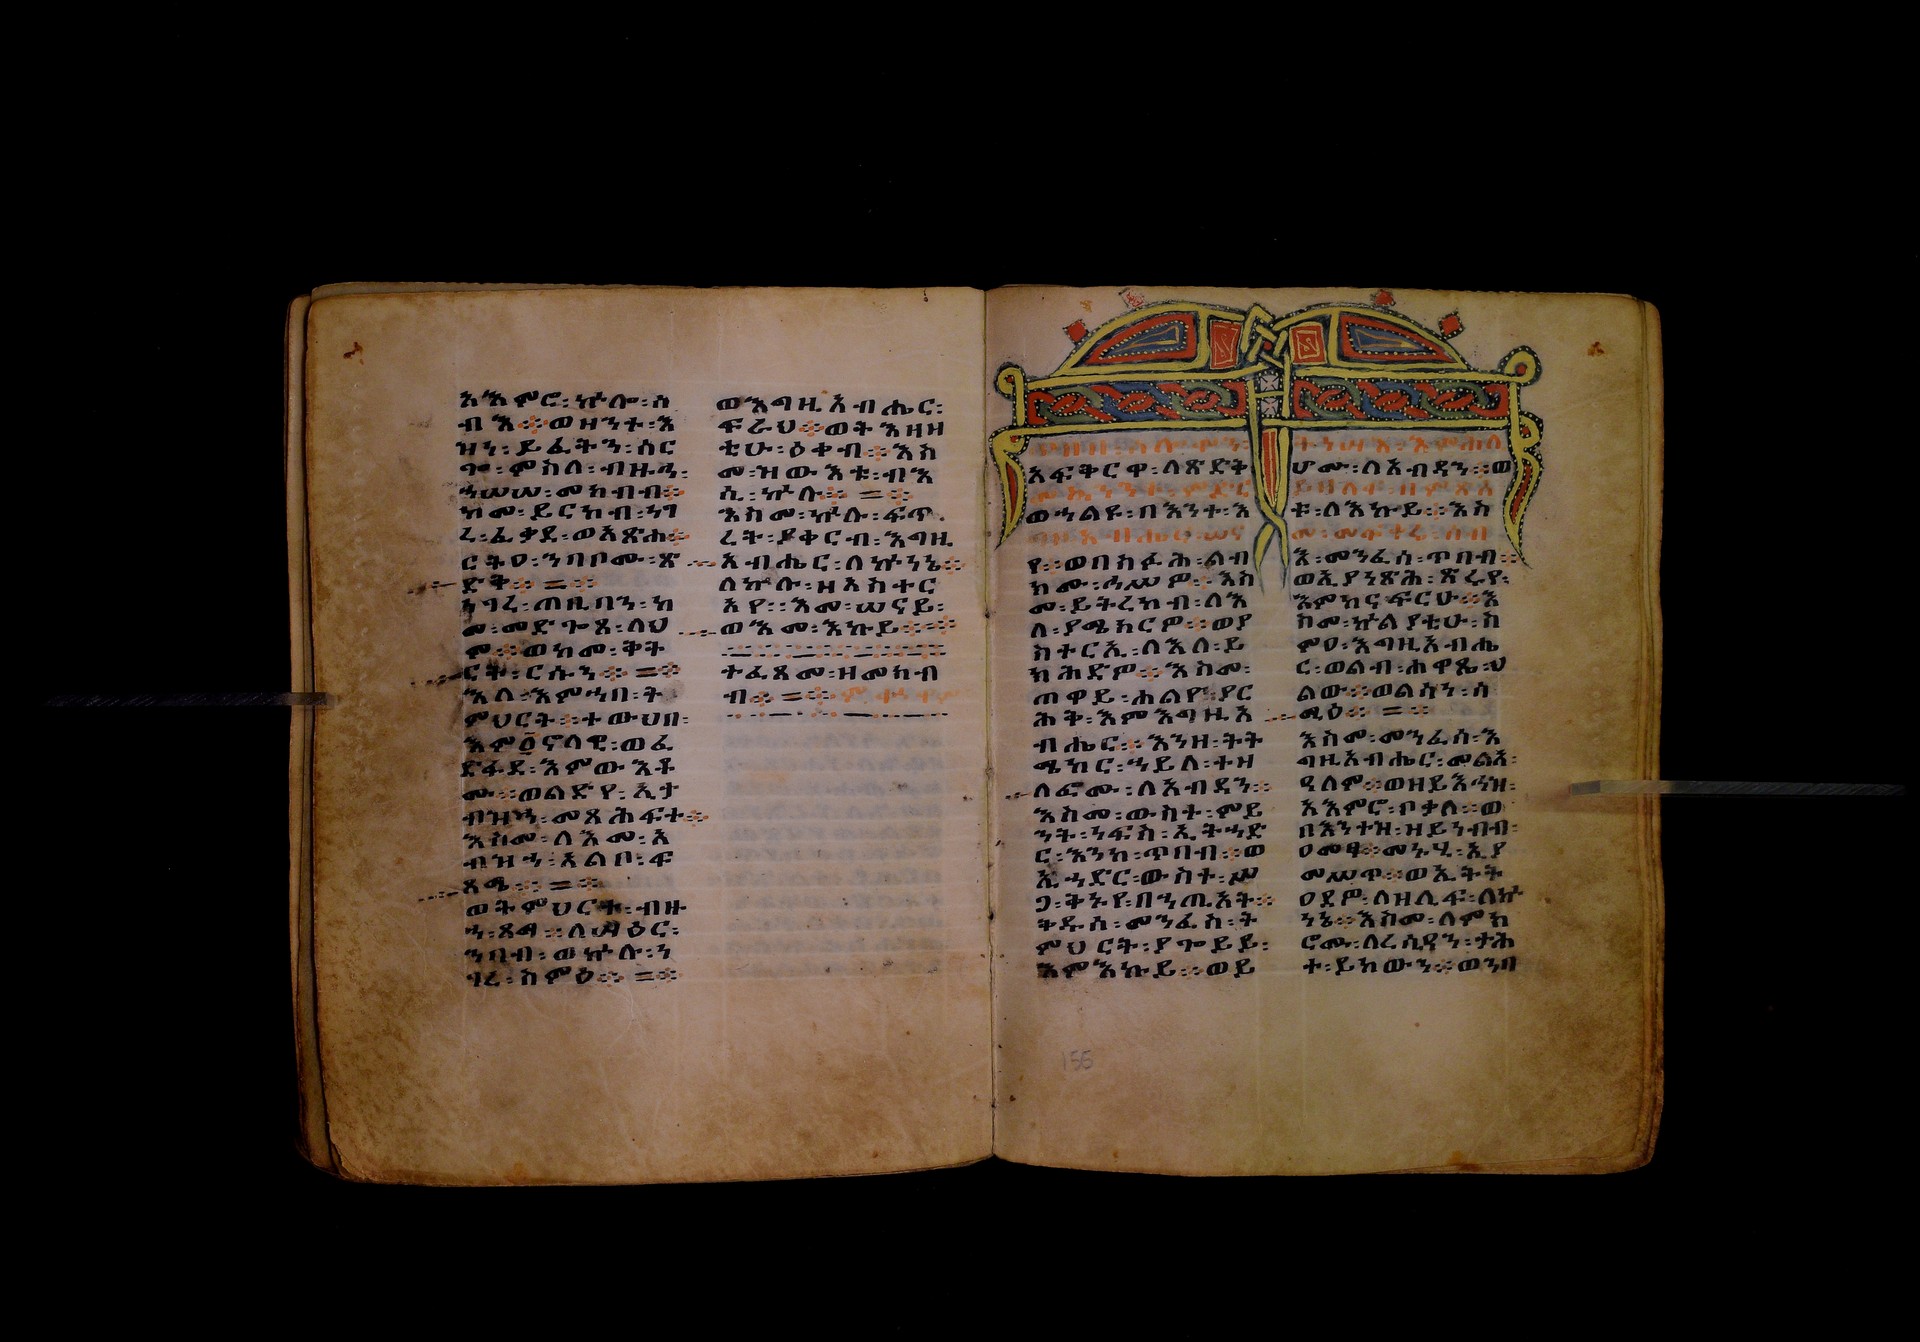 አእምሮ፡ኵሎ፡ሰ
ብእ፨ወዘንተ፡እ
ዝን፡ይፈትን፡ሰር
ጐ፡ምስለ፡ብዙኃ፡
ኀሠሠ፡መክብብ፨
ከመ፡ይርከብ፡ነገ
ረ፡ፈቃደ፡ወእጽሐ፨
ርትዐ፡ንባቦሙ፡ጽ
ድቅ፨=፨
ነገረ፡ጠቢባን፡ከ
መ፡መድጐጸ፡ላህ
ም፨ወከመ፡ቅት
ርት፡ርሱን፨=፨
እለ፡እምኀበ፡ት
ምህርት፨ተውህበ፡
እም፩ኖላዊ፡ወፈ
ድፋደ፡እምውእቶ
ሙ፨ወልድየ፡ኢታ
ብዝኅ፡መጽሕፍተ፨
እስመ፡ለእመ፡አ
ብዝኀ፡አልቦ፡ፍ
ጻሜ፨=፨
ወትምህርት፡ብዙ
ኅ፡ጻማ፨ለሥዕር፡
ንባብ፡ወኵሉ፡ን
ገረ፡ስምዕ፨=፨
ወእግዚአብሔር፡
ፍራህ፨ወትእዛዘ
ቲሁ፡ዕቀብ፨እስ
መ፡ዝውእቱ፡ብእ
ሲ፡ኵሉ፨=፨
እስመ፡ኵሉ፡ፍጥ
ረት፡ያቀርብ፡እግዚ
አብሔር፡ለኵነኔ፨
ለኵሉ፡ዘአስተር
አየ፡፡እመ፡ሠናይ፡
ወእመ፡እኩይ፨
ተፈጸመ፡ዘመክብ
ብ፨=፨
አፍቅርዋ፡ለጽድቅ
ወኀልዩ፡በእንተ፡እ
የ፨ወበስፉሕ፡ልብ
ክሙ፡ኃሥዎ፨እስ
መ፡ይትረከብ፡ለእ
ለ፡ያሜክርዎ፨ወያ
ስተርኢ፡ለእለ፡ይ
ክሕድዎ፨እስመ፡
ጠዋይ፡ሕልየ፡ያር
ሕቅ፡እምእግዚአ
ብሔር፨እንዘ፡ትት
ሜከር፡ኀይለ፡ትዘ
ለፎሙ፡ለአብዳን፨
እስመ፡ውስተ፡ምይ
ንት፡ነፍስ፡ኢትኀድ
ር፡እንከ፡ጥበብ፨ወ
ኢኀድር፡ውስተ፡ሥ
ጋ፡ቅኑየ፡በኀጢአት፨
ቅዱስ፡መንፈስ፡ት
ምህርት፡ያጐይይ፡
እምእኩይ፨ወይ
ሆሙ፡ለአብዳን፨ወ
ቱ፡ለእኩይ፨እስ
እ፡መንፈሰ፡ጥበብ፨
ወኢያነጽሕ፡ጽሩየ፡
እምከናፍርሁ፨እ
ስመ፡ኵልያቲሁ፡ስ
ምዐ፡እግዚአብሔ
ር፡ወልብ፡ሐዋጼ፡ህ
ልው፨ወልሳን፡ሰ
ማዕ፨=፨
እስመ፡መንፈሰ፡እ
ግዚአብሔር፡መልአ፡
ዓለም፨ወዘይእኅዝ፡
አእምሮ፡ቦቃለ፨ወ
በእንተዝ፡ዝይነብብ፡
ዐመፃ፨መኑሂ፡ኢያ
መሥጥ፨ወኢትት
ዐደዎ፡ለዘሊፍ፡ለኵ
ነኔ፨እስመ፡ለምክ
ሮሙ፡ለረሲዓን፡ታሕ
ተ፡ይከውን፨ወንባ
155